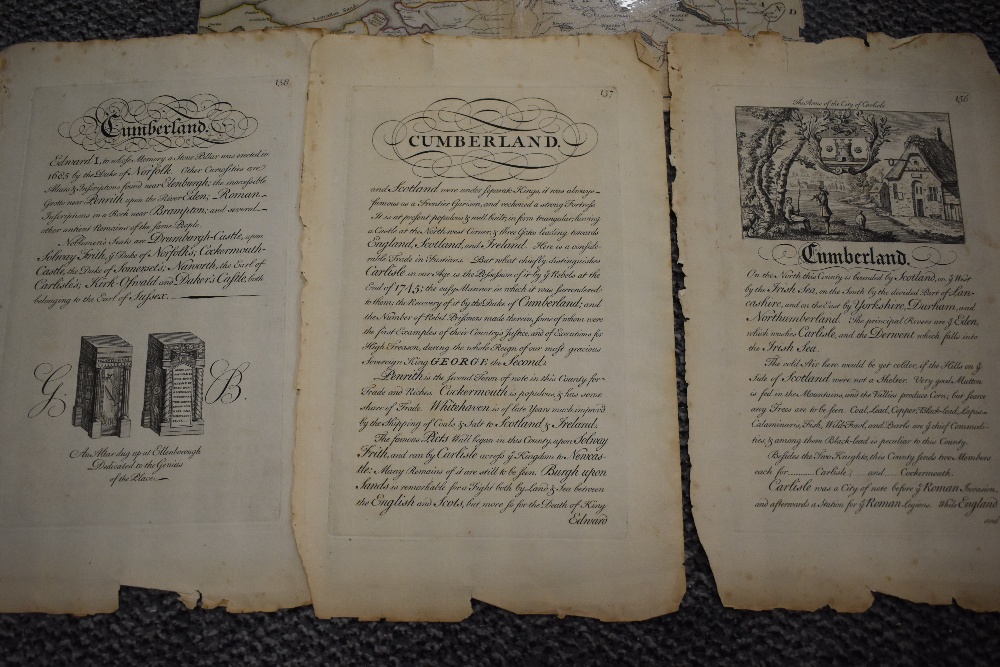 158
Cumberland.
Edward I, to whose Memory a Stone Pillar was erected in
1685 by the Duke of Norfolk. Other Curiosities are
Altars & Inscriptions found near Elenburgh; the inaccessible
Grotto near Penrith upon the River Eden; Roman
Inscriptions in a Rock near Brampton; and several
other antient Remains of the same People.
Noblemen's Seats are Drumburgh-Castle, upon
Solway Frith, ye Duke of Norfolk's; Cockermouth-
Castle, the Duke of Somerset's; Naworth, the Earl of
Carlisle's; Kirk-Oswald and Daker's Castle, both
belonging to the Earl of Sussex.
G. B.
An Altar dug up at Ellenborough
Dedicated to the Genius
of the Place.
157
CUMBERLAND.
and Scotland were under separate Kings, it was always
famous as a Frontier Garison, and reckoned a strong Fortress.
It is at present populous & well built; in form triangular, having
a Castle at the North west Corner, & three Gates leading towards
England, Scotland, and Ireland. Here is a conside-
rable Trade in Fustians. But what chiefly distinguishes
Carlisle in our Age is the Possession of it by ye Rebels at the
End of 1745; the easy Manner in which it was surrendered
to them; the Recovery of it by the Duke of Cumberland; and
the Number of Rebel Prisoners made therein, some of whom were
the first Examples of their Country's Justice, and of Executions for
High Treason, during the whole Reign of our most gracious
Sovereign King GEORGE the Second.
Penrith is the second Town of note in this County for
Trade and Riches. Cockermouth is populous, & has some
share of Trade. Whitehaven is of late Years much improv'd
by the Shipping of Coals & Salt to Scotland & Ireland.
The famous Picts Wall began in this County upon Solway
Frith, and ran by Carlisle across ye Kingdom to Newcas-
tle: Many Remains of it are still to be seen. Burgh upon
Sands is remarkable for a Fight both by Land & Sea between
the English and Scots, but more so for the Death of King
Edward
156
The Arms of the City of Carlisle
Cumberland.
On the North this County is bounded by Scotland, on ye West
by the Irish Sea, on the South by the divided Part of Lan-
cashire, and on the East by Yorkshire, Durham, and
Northumberland. The principal Rivers are ye Eden,
which washes Carlisle, and the Derwent which falls into
the Irish Sea.
The cold Air here would be yet colder, if the Hills on ye
Side of Scotland were not a Shelter. Very good Mutton
is fed in the Mountains, and the Vallies produce Corn; but scarce
any Trees are to be seen. Coal, Lead, Copper, Black-lead, Lapis
Calaminaris, Fish, Wild-Fowl, and Pearls are ye chief Commodi-
ties, & among them Black-lead is peculiar to this County.
Besides the Two Knights, this County sends two Members
each for Carlisle and Cockermouth.
Carlisle was a City of note before ye Roman Invasion,
and afterwards a Station for ye Roman Legions. While England
and